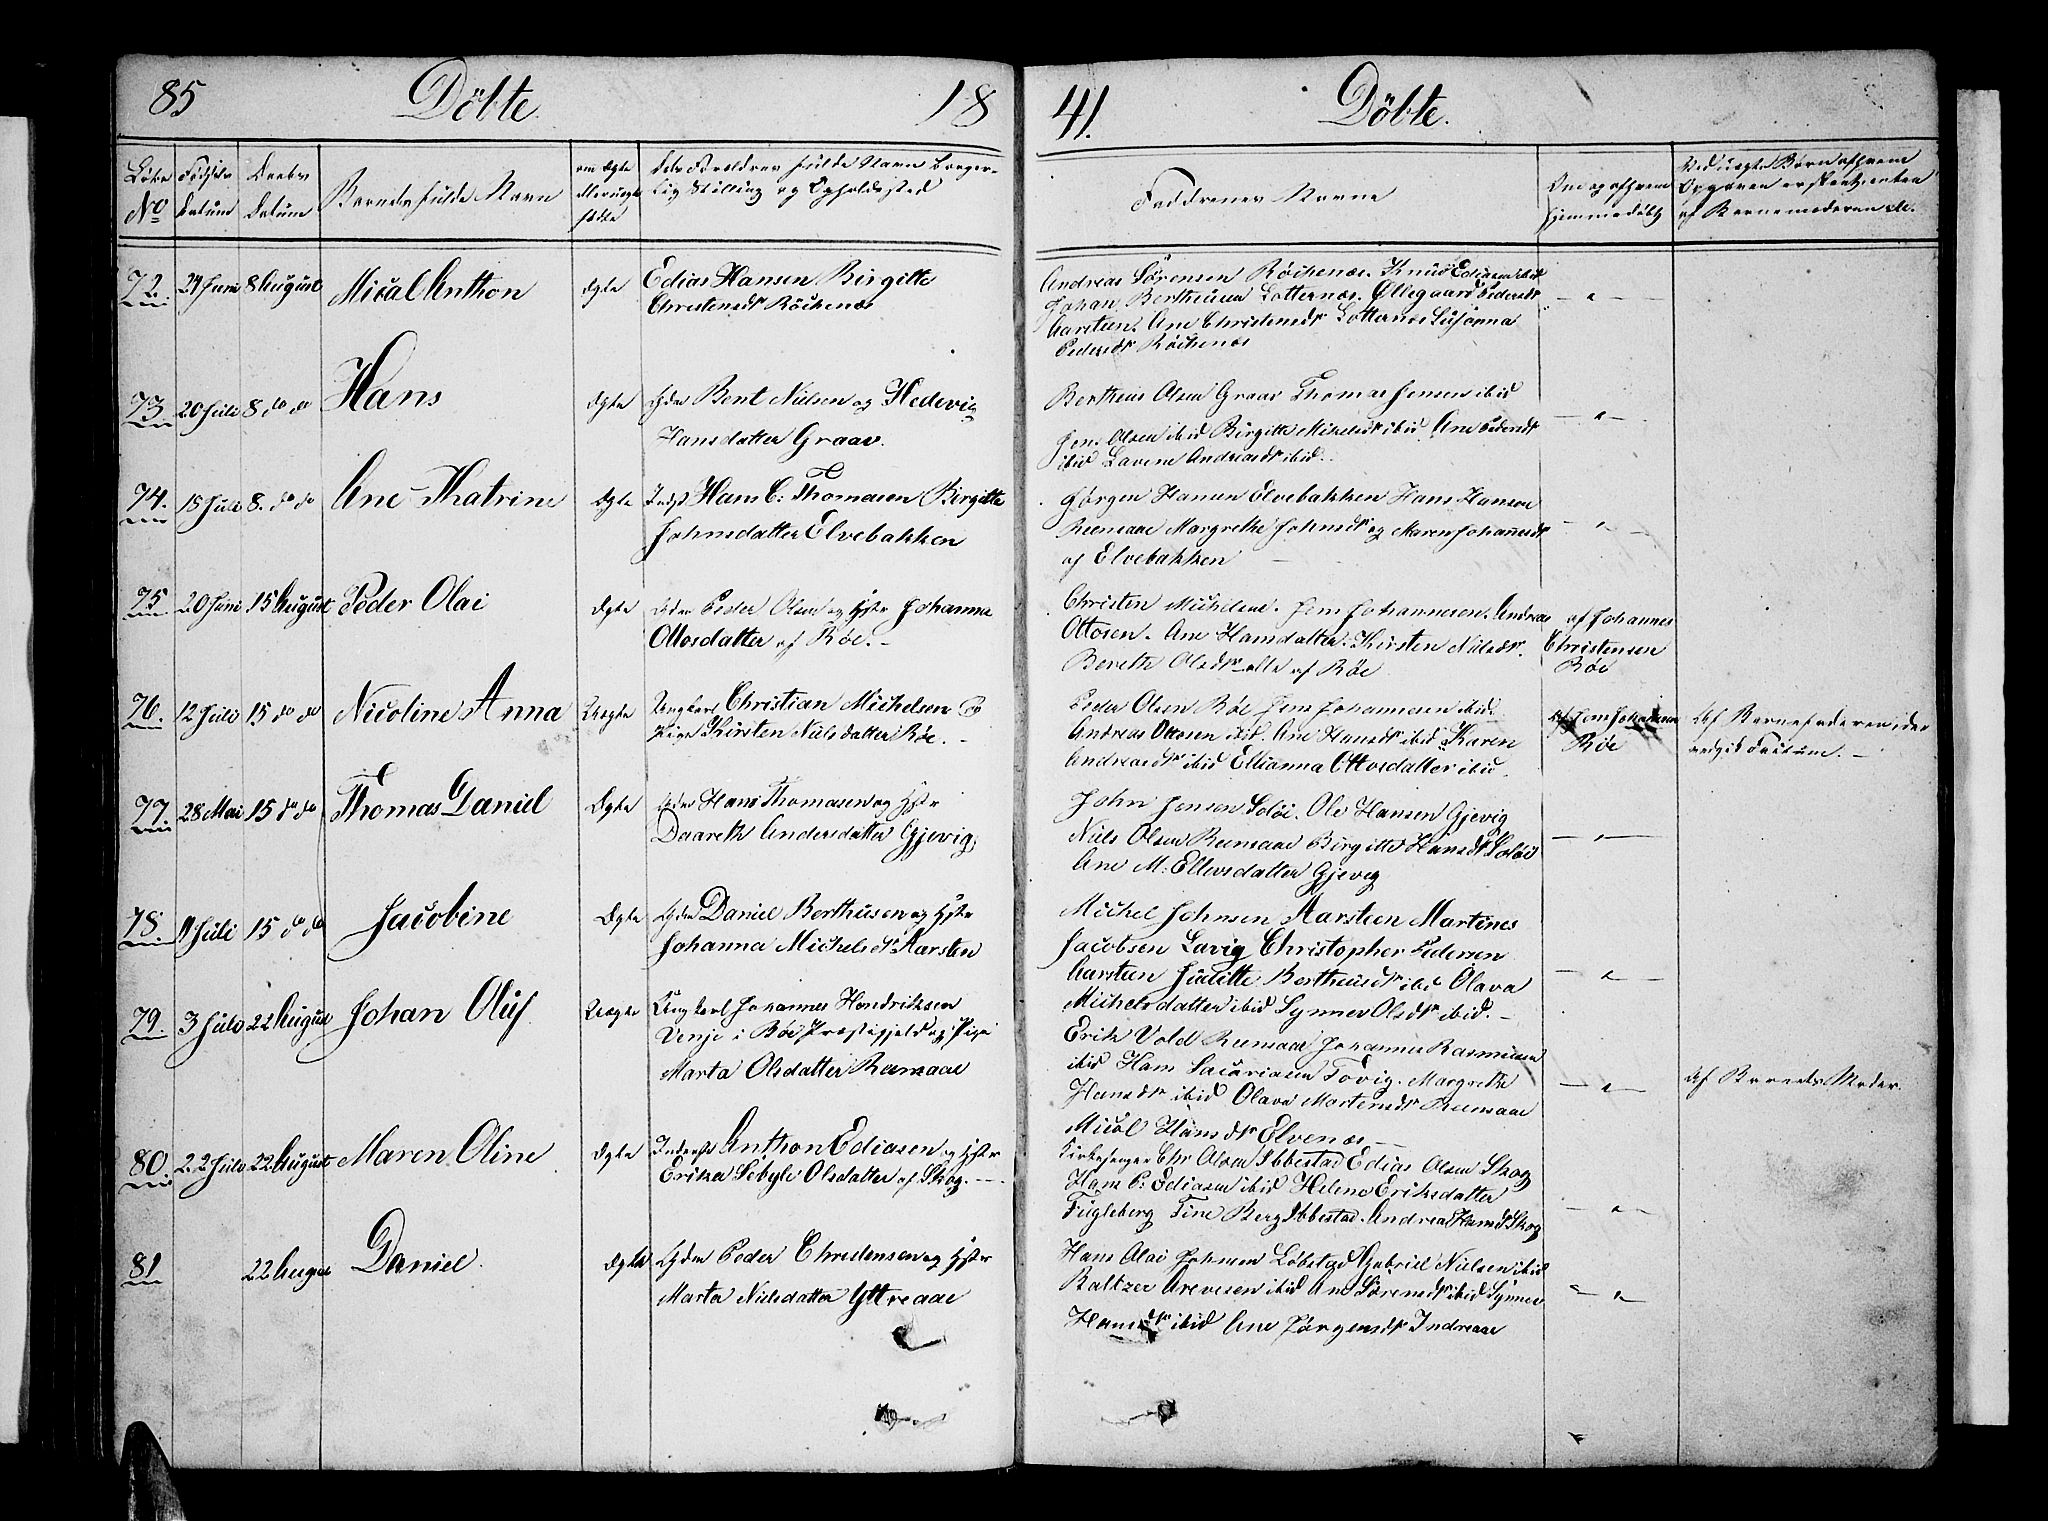 85 Döbte. 18
41. Döbte.
Löbe No
Födsels Datum
Daabs Datum
Barnets fulde Navn
om ægte eller uægte födte
dets Forældres fulde Navn borger-
lig Stilling og Opholdssted
Faddrenes Navne
Om og af hvem hjemmedöbt
Ved uægte Börn af hvem
Opgaven er
af Barnemoderen etc.
72. 24 Juni 8 August Mical Anthon ægte Edias Hansen Birgitte
Christensdr Röckenæs
Andreas Sörensen Röckenæs. Knud Ediassen ibid
Johan Bertheusen Lotternæs. Ollegaard Pedersdr
Aarstien. Ane Christensdr Lotternæs Susanna
Pedersdr Röckenæs
73. 20 Juli 8 do do Hans ægte Gdm Bent Nilsen og Hedevig
Hansdatter Graav.
Bertheus Olsen Graav Thomas Jensen ibid
Jens Olsen ibid Birgitte Mikelsdr ibid Ane Pedersdr
ibid Lavine Andreasdr ibid.
74. 15 Juli 8. do do Ane Khatrine ægte Indst Hans C: Thomesen Birgitte
Johnsdatter Elvebakken
Jörgen Hansen Elvebakken Hans Hansen
Reensaae Margrethe Johnsdr og Maren Johannesdr
af Elvebakken
75 20 Juni 15 August Peder Olai ægte Peder Olsen og Hstr Johanna
Ottosdatter af Röe. -
Christen Michelsen. Jens Johannesen. Andreas
Ottosen. Ane Hansdatter. Kirsten Nilsdr.
Berethe Olsdr alle af Röe
af Johannes
Christensen
Röe
76. 12 Juli 15 do do Nicoline Anna Uægte Ungkarl Christian Michelsen &
Pige Kirsten Nilsdatter Röe. -
Peder Olsen Röe Jens Johannesen ibid.
Andreas Ottosen ibid. Ane Hansdr ibid Karen
Andreasdr ibid Ellianna Ottosdatter ibid.
af Jens Johannesen
Röe
Af Barnefaderen
77. 28 Mai 15 do do Thomas Daniel Ægte Hans Thomasen og Hstr
Daareth Andersdatter Gjevig.
John Jensen Solöi. Ole Hansen Gjevig
Niels Olsen Reensaae Birgitte Hansdr Solöi
Ane M: Ellevsdatter Gjevig
78. 11 Juli 15 do do Jacobine Ægte Gdm Daniel Berthusen og Hstr
Johanna Michelsdr Aarsten
Mickel Johnsen Aarstien Martines
Jacobsen Lavig Christopher Pedersen
Aarstien Juditte Bertheusdr ibid Olava
Michelsdatter ibid Synnev Olsdr ibid. -
79. 3 Juli 22 August Johan Oluf Uægte Ungkarl Johannes Hendriksen
Venje i Böe Præstegjeld og Pige
Marta Olsdatter Reensaae
Erik Vold Reensaae Johannes Rasmusen
ibid Hans Sacariasen Tovig. Margrethe
Hansdr ibid Olava Mortensdr Reensaae
Micol Hansdr Elvenæs -
Af Barnets Moder.
80. 22 Juli 22 August Maren Oline ægte Inderst Anthon Ediasen og Hstr
Erika Sebylè Olsdatter af Skog. -
Kirkesanger Chr Olsen Ibbestad Edias Olsen Skog
Hans P. Ediasen ibid Helene Eriksdatter
Fugleberg Tine Berg Ibbestad. Andrea Hansdr Skog
81 22 August Daniel. ægte Gdm Peder Christensen og Hstr
Marta Nielsdatter Yttreaae
Hans Olai Johnsen Löbstad Gabriel Nielsen ibid
Baltzer Arevesen ibid Ane Sörensdr ibid Synnev
Hansdr ibid Ane Jörgensdr Indreaae